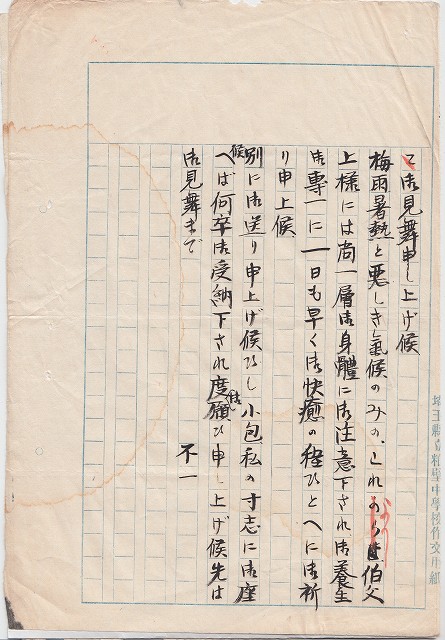 て御見舞申し上げ候
梅雨暑熱と悪しき氣候のみの、 伯父
上様には尚一層御身體に御注意下され御養生
御專一に一日も早く御快癒の程ひとへに御祈
り申上候
別に御送り申上げ候ひし小包私の寸志に御座
候へば何卒御受納下され度願ひ申し上げ候先は
御見舞まで 不一
埼玉縣立粕壁中學校作文用紙